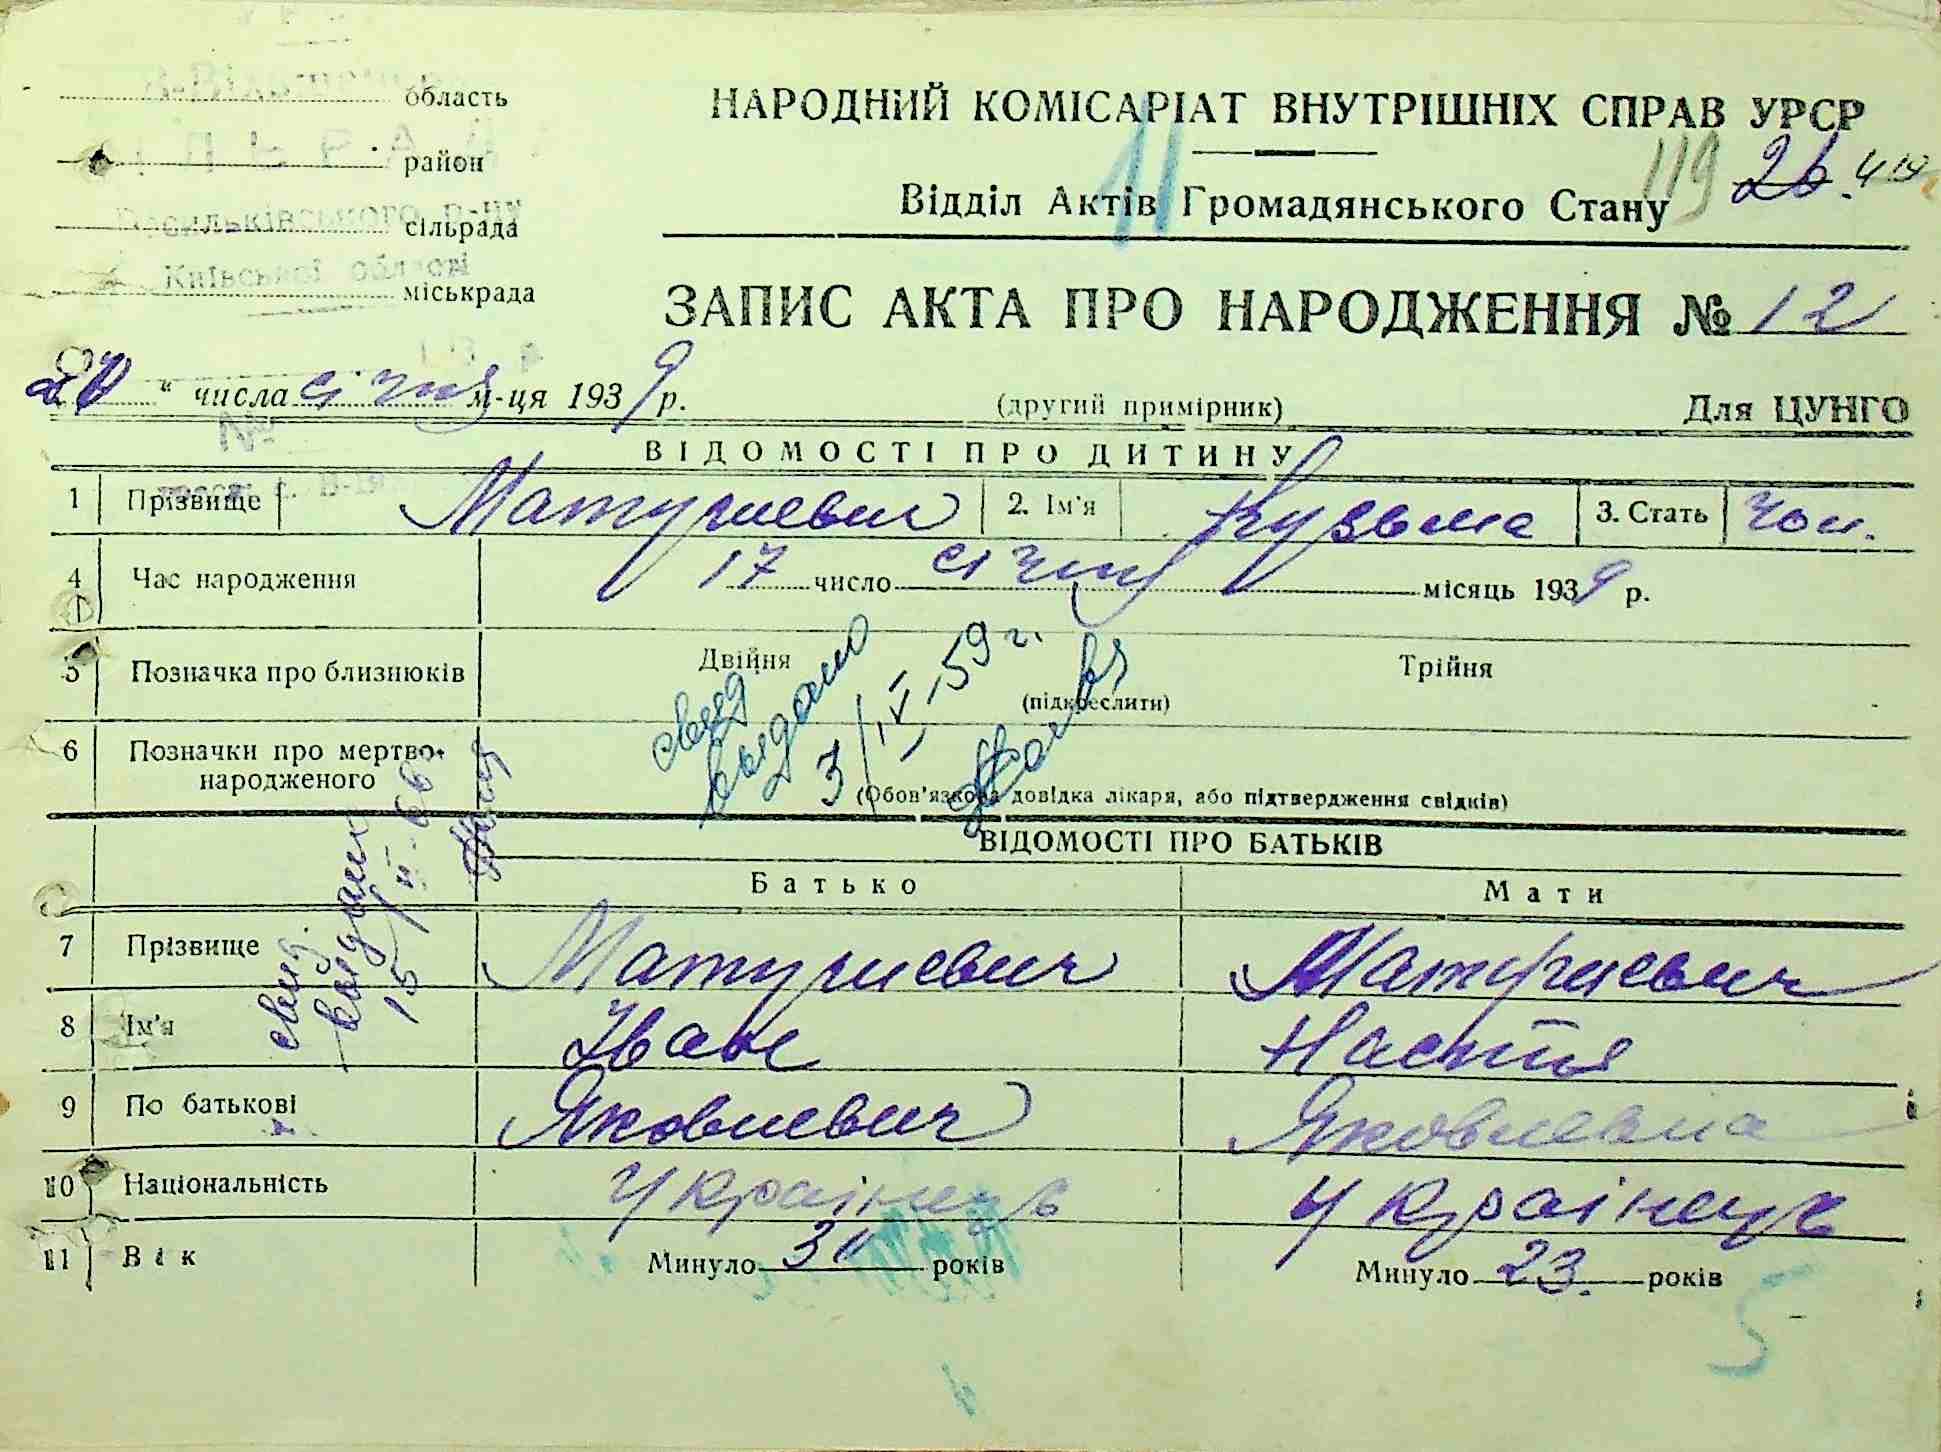 область
район
Васильківського р-ну
сільрада
Київської області
міськрада
НАРОДНИЙ КОМІСАРІАТ ВНУТРІШНІХ СПРАВ УРСР
11
119 26.
Відділ Актів Громадянського Стану
ЗАПИС АКТА ПРО НАРОДЖЕННЯ № 12
20 " числа січня м-ця 1939 р.
(другий примірник)
Для ЦУНГО
№
ВІДОМОСТІ ПРО ДИТИНУ
1 Прізвище Матушевич 2. Ім'я Кузьма 3. Стать чол.
4 Час народження 17 число січня місяць 1939 р.
5 Позначка про близнюків Двійня Трійня
(підкреслити)
6 Позначки про мертво-
народженого
(Обов'язкова довідка лікаря, або підтвердження свідків)
свид
выдано
3/IV-59 г.
свид.
выдано
15
ВІДОМОСТІ ПРО БАТЬКІВ
Батько Мати
7 Прізвище Матушевич Матушевич
8 Ім'я Іван Настя
9 По батькові Яковлевич Яковлевна
10 Національність Українець Українець
11 Вік Минуло років Минуло 23. років
5